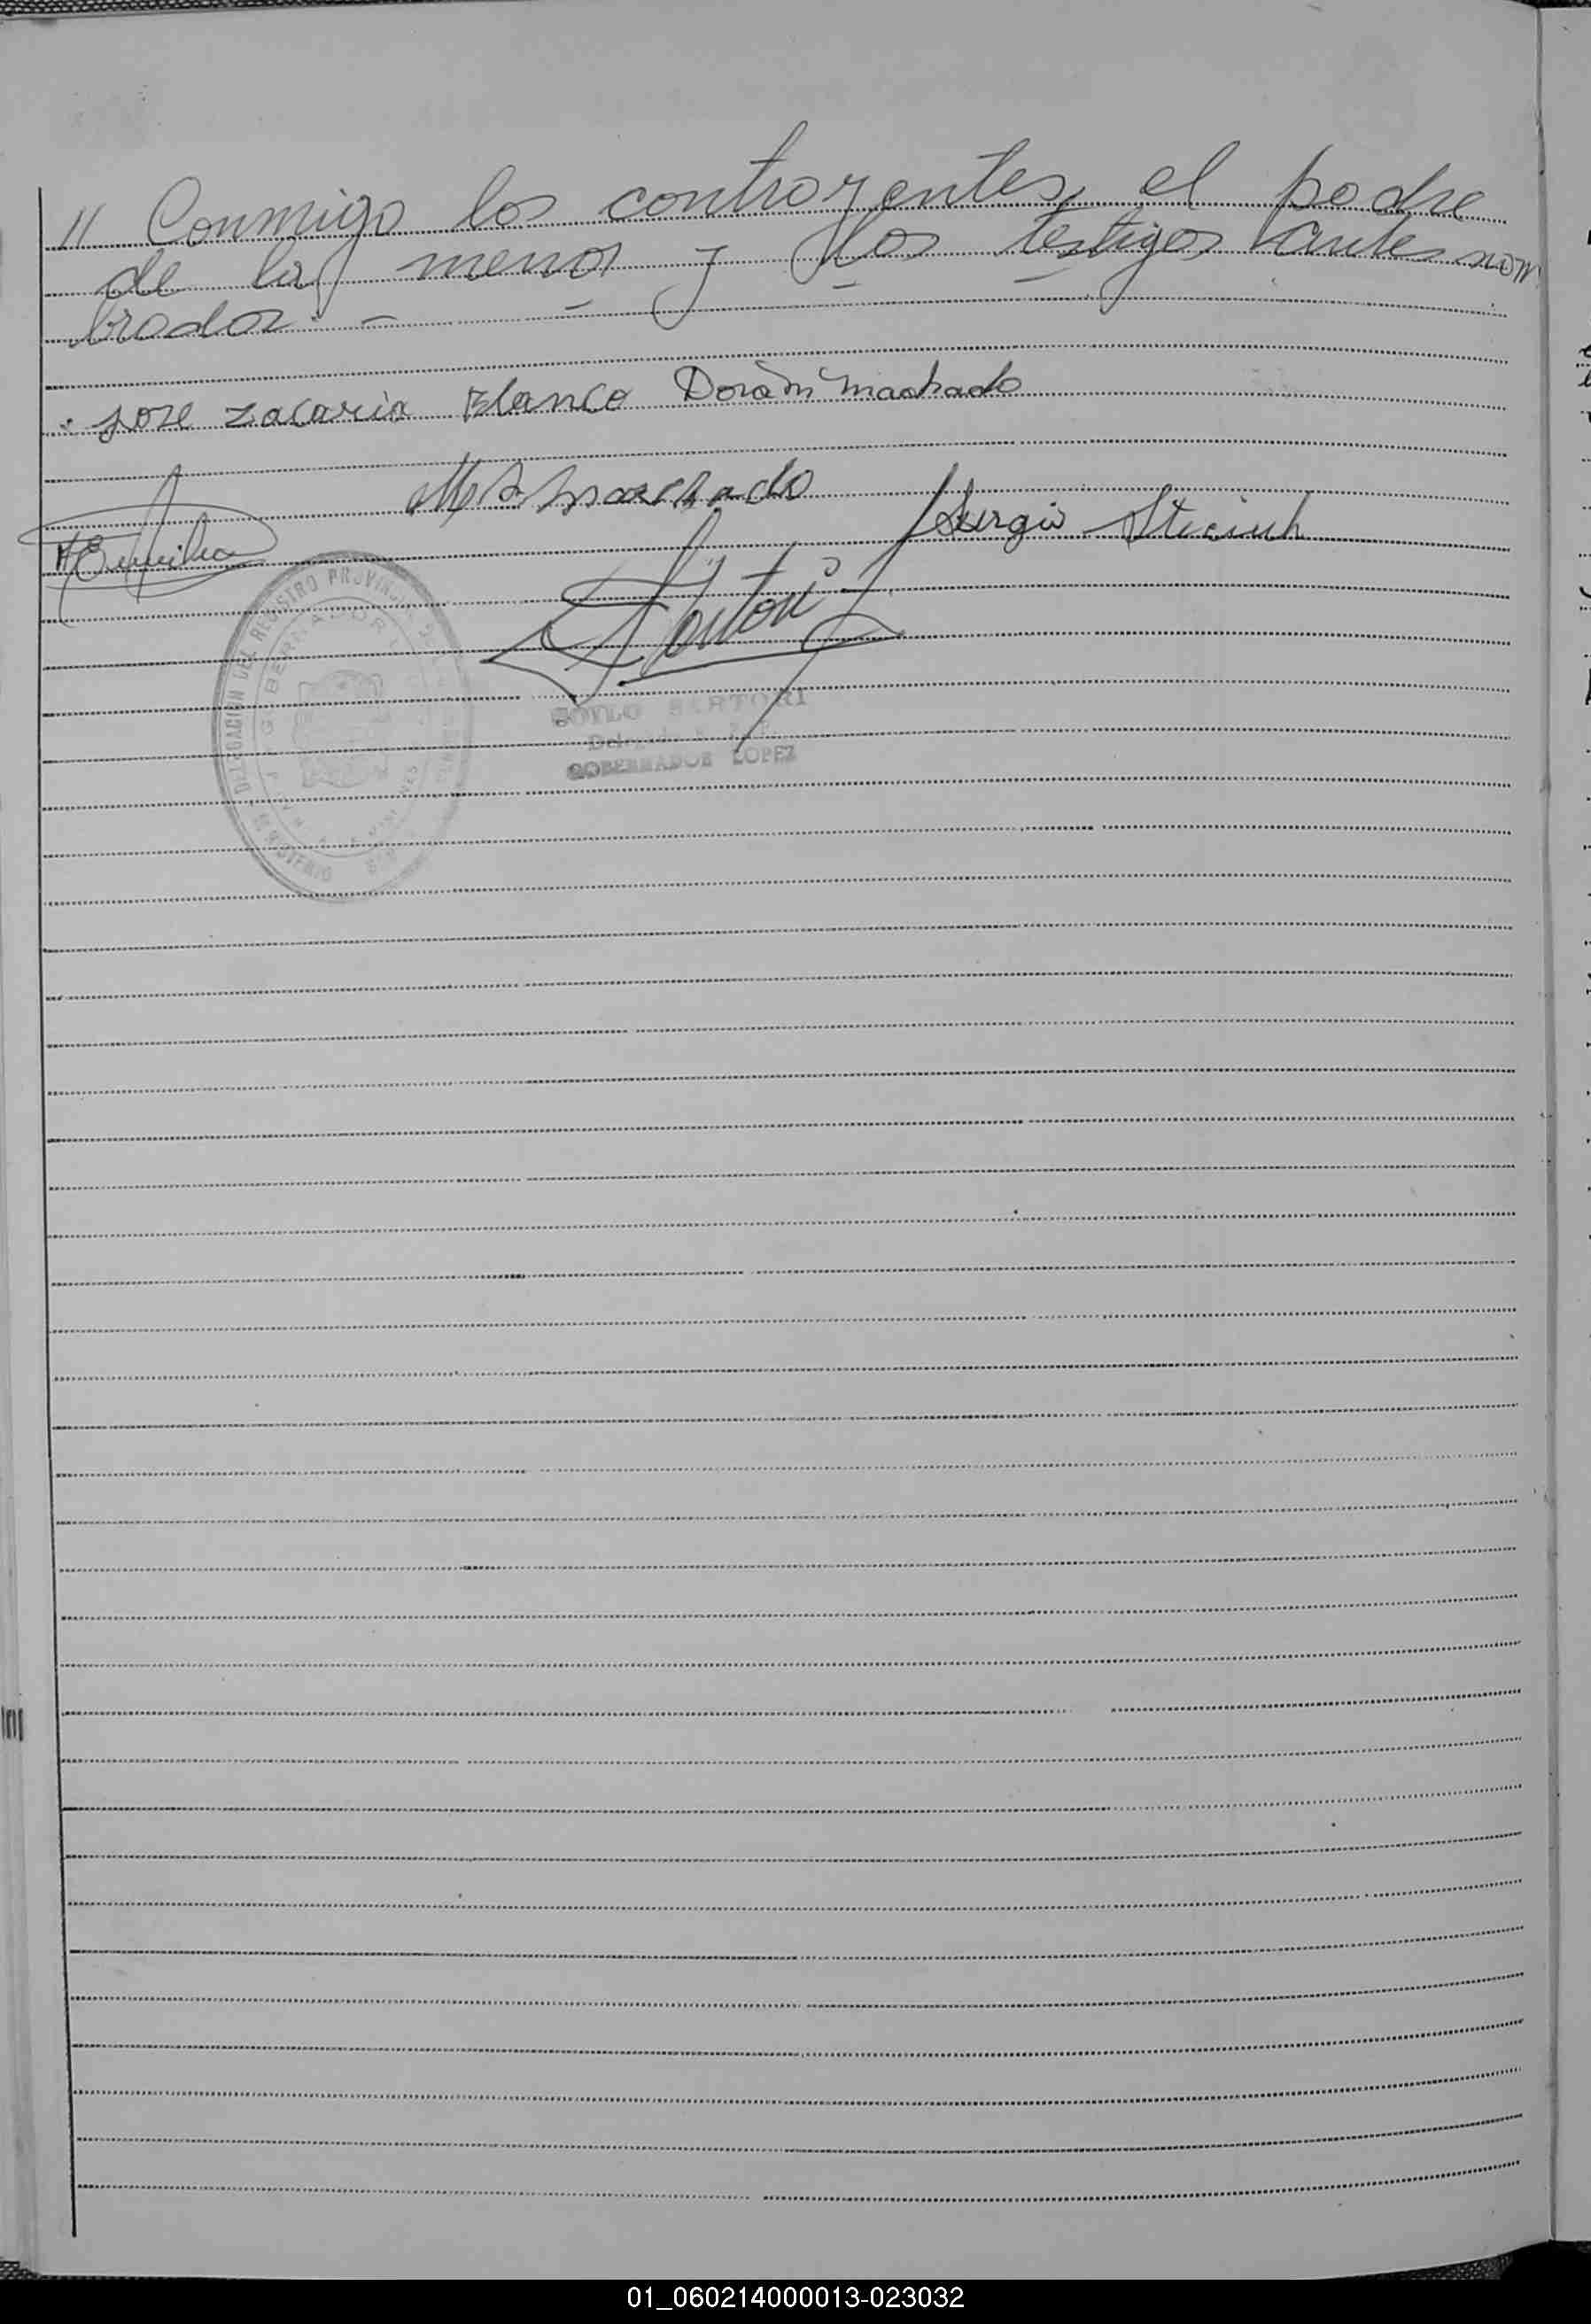 // Conmigo los contrayentes, el padre
de la menor y los testigos antes nom
brados. - -
Jose Zacaria Blanco Dorani Machado
Machado
Sergio Steciuk
Sartori
DELEGACION DEL REGISTRO PROVINCIAL
GOBERNADOR
SARTORI
GOBERNADOR LOPEZ
01_060214000013-023032